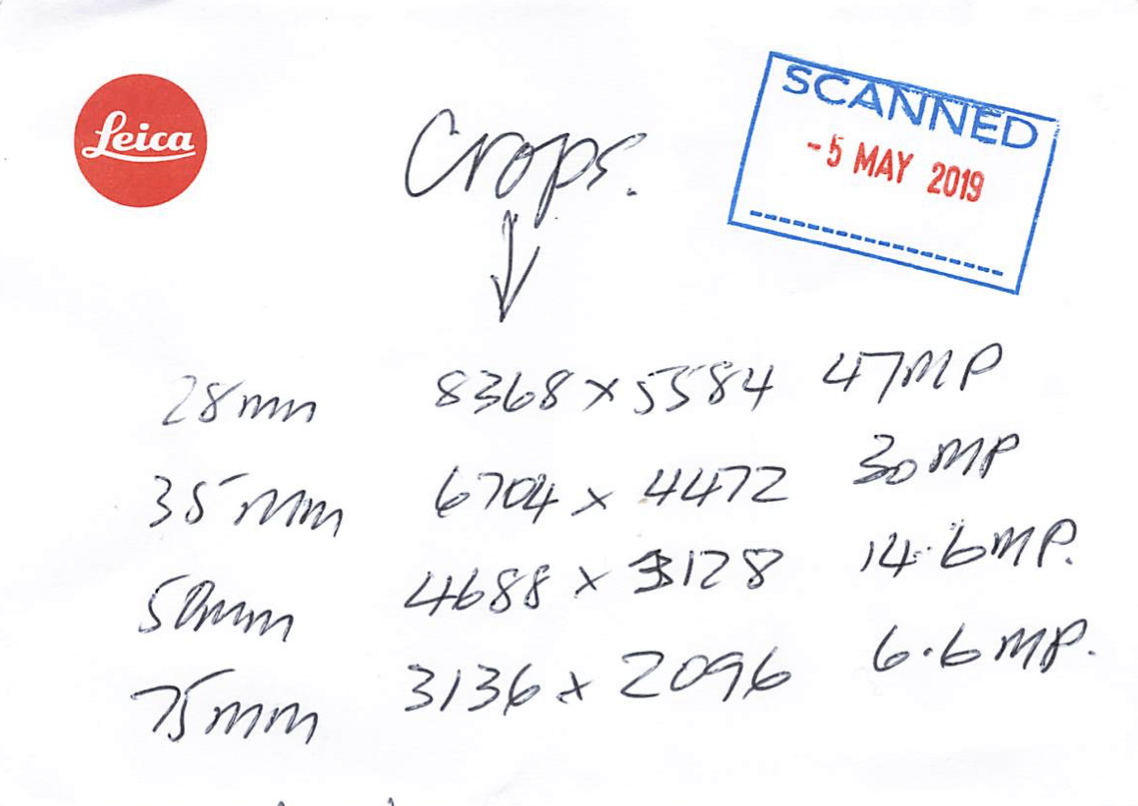 Leica
Crops.
SCANNED
-5 MAY 2019
28mm 8368 x 5584 47MP
35mm 6704 x 4472 30MP
50mm 4688 x 3128 14.6MP.
75mm 3136 x 2096 6.6MP.